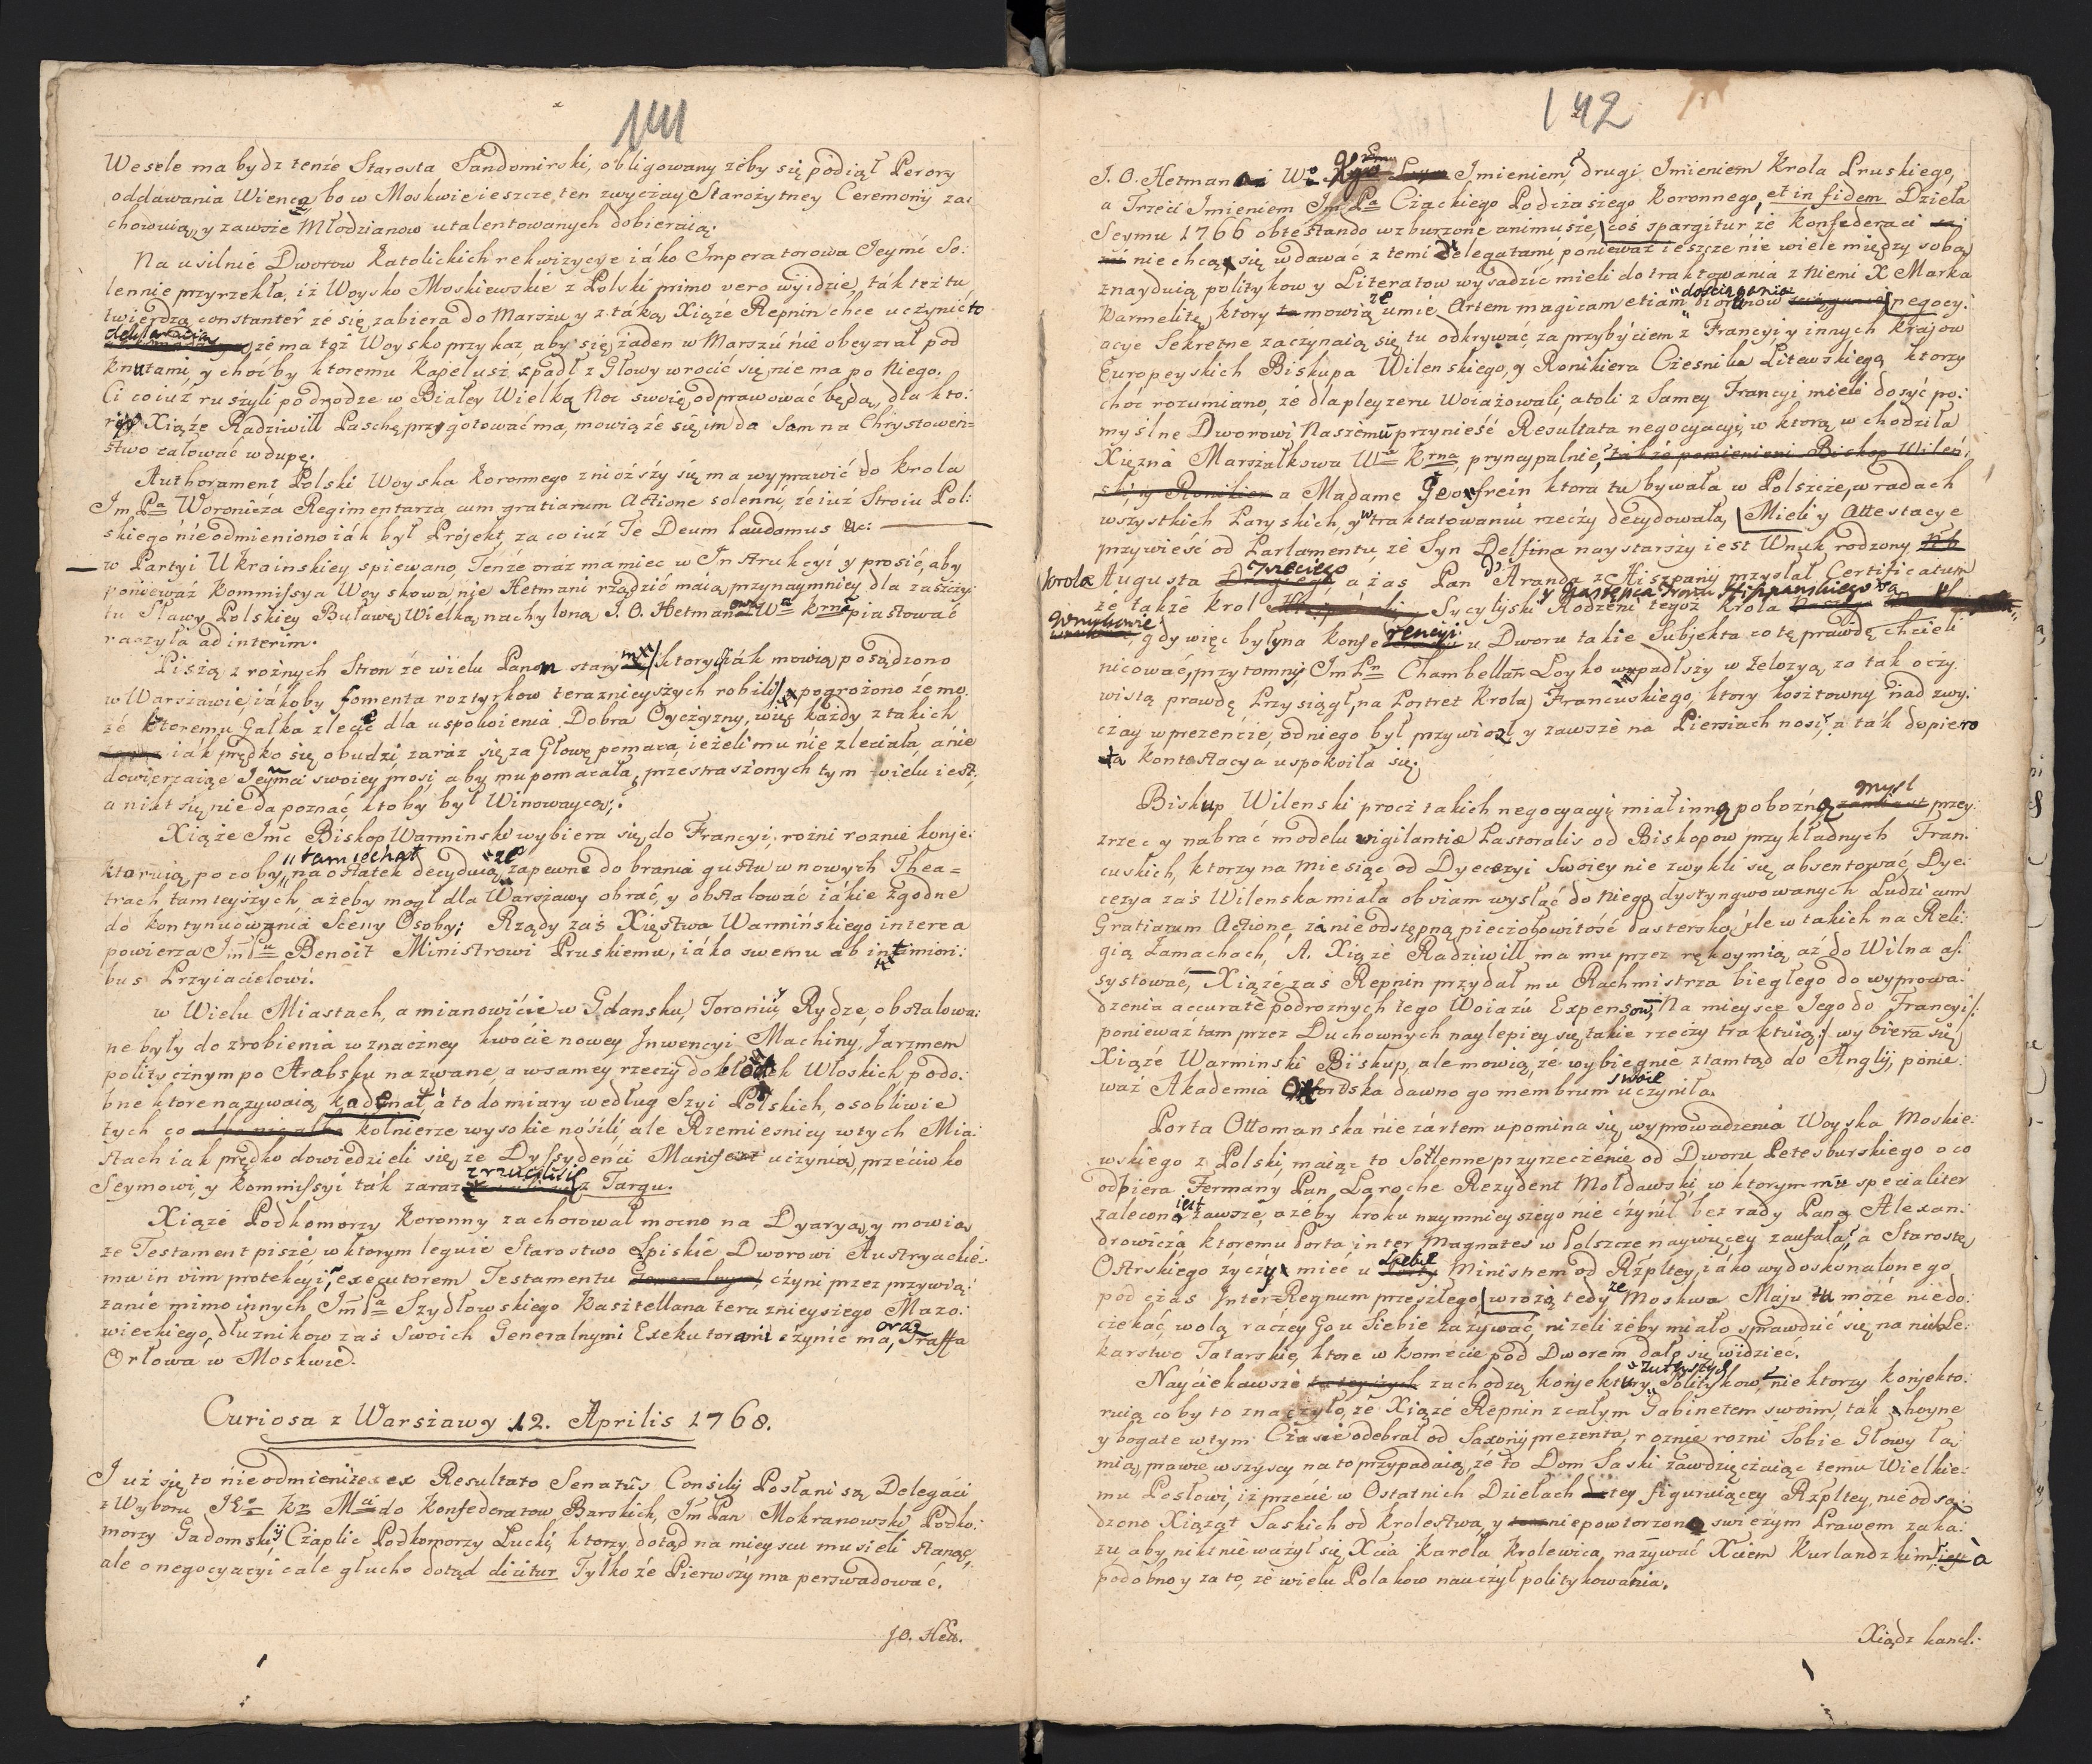 141
Wesele ma bydz tenże Starosta Sandomirski, obligowany żeby się podiął Perory
oddawania Wienca, bo w Moskwie ieszcze ten zwyczay Starożytney Ceremonij za:
chowuią, y zawsze Młodzianow utalentowanych dobieraią.
Na usilnie Dworow Katolickich rekwizycye iáko Imperatorowa Jeymć So:
lennie przyrzekła, iż Woysko Moskiewskie z Polski primo vero wyidzie, ták też tu
twierdzą constanter że się zabiera do Marszu, y z táką Xiąże Repnin chce uczynić to
deklaracyią że ma toż Woysko przykaz, aby się żaden w Marszú nie obeyzrał pod
knutami, y choćby ktoremu Kapelusz spadł z Głowy wrocić się nie ma po niego.
Ci co iuż ruszyli po drodze w Białey Wielką Noc swoię odprawować będą, dla kto:
rych Xiąże Radziwiłł Paschę przygotować ma, mowią że się im da Sam na Chrystowen=
stwo całować w dupę.
Authorament Polski Woyska Koronnego znioższy się ma wyprawić do Krola
Jm Pa Woronicza Regimentarza cum gratiarum Actione solenni, że iuż Stroiu Pol:
skiego nieodmieniono iák był Projekt, za co iuż Te Deum laudamus &c:
w Partyi Ukrainskiey spiewano, Tenże oraz ma miec w Instrukcyi y prosić, aby
ponieważ Kommissya Woyskowa, nie Hetmani rządzić maią, przynaymniey dla zaszczy:
tu Sławy Polskiey Buławę Wielką nachyloną J. O. Hetmanowa Wa Krna piastować
raczyła ad interim.
Piszą z rożnych Stron że wielu Panom starym, ktorych iák mowią posądzono
w Warszawie iákoby fomenta roztyrkow teraznieyszych robili, pogrożono że mo:
że ktoremu Gałka zlecić dla uspokoienia Dobra Oyczyzny, więc każdy z takich
iak prędko się obudzi, zaraz się za Głowę pomaca, ieżeli mu nie zleciała, a nie
dowierzaiąc Jeymci swoiey prosi, aby mu pomacała, przestraszonych tym wielu iest,
a nikt się nie da poznać kto by był Winowaycą.
Xiąże Jmc Biskop Warminski wybiera się do Francyi, rożni roznie konje:
kturuią po co by tam iechał, na ostatek decyduią że zapewne do brania gustu w nowych Thea=
trach tamteyszych, ażeby mogł dla Warszawy obrać, y obstalować iákie zgodne
do kontynuowania Sceny Osoby; Rządy zaś Xięstwa Warmińskiego interea
powierza Jm Pu Benoit Ministrowi Pruskiemu, iáko swemu ab intimiori:
bus Przyiacielowi.
w Wielu Miastach, a mianowicie w Gdansku, Toroniu, y Rydze, obstalowa:
ne były do zrobienia w znaczney kwocie nowey Inwencyi Machiny, Jarzmem
politycznym po Arabsku nazwane, a w samey rzeczy do kłodek Włoskich podo:
bne ktore nazywaią kadenał, á to do miary według Szyi Polskich, osobliwie
tych co kołnierze wysokie nośili, ale Rzemiesnicy w tych Mia:
stach iak prędko dowiedzieli się, że Dyssydenci Manifest uczynią, przećiwko
Seymowi, y Kommissyi ták zaraz zrzucili z Targu.
Xiąże Podkomorzy Koronny zachorował mocno na Dyaryą, y mowią
że Testament pisze w ktorym leguie Starostwo Spiskie Dworowi Austryackie:
mu in vim protekcyi, executorem Testamentu czyni przez przywią:
zanie mimo innych Jm Pa Szydłowskiego Kasztellana teraznieysiego Mazo:
wieckiego, dłuznikow zaś swoich Generalnymi Exekutorami czynić ma, oraz Graffa
Orłowa w Moskwie.
Curiosa z Warszawy 12. Aprilis 1768.
Już się to nieodmieni że ex Resultato Senatûs Consilij Posłani są Delegaci
z Wyboru JKo Kr Mci do Konfederatow Barskich, Jm Pan Mokranowski, Podko:
morzy Gadomski y Czaplic Podkomorzy Łucki, ktorzy dotąd na mieyscu musieli stanąć,
ale o negocyacyi cale głucho dotąd dicitur Tylko że Pierwszy ma perswadować.
J.O. Hett.
142
J. O. Hetmana Wo Imieniem, drugi Imieniem Krola Pruskiego,
a Trzeci Imieniem Jm Pa Czackiego Podczaszego Koronnego, et in fidem Dzieła
Seymu 1766 obtestando wzburzone animusze, coś spargitur że Konfederaci
nie chcą się wdawać z temi Delegatami, ponieważ ieszcze nie wiele między sobą
znayduią politykow y Literatow wysadzić mieli do traktowania z niemi X Marka
Karmelitę, ktory mowią że umie Artem magicam etiam do dościągania negocy:
acye Sekretne zaczynaią się tu odkrywać, za przybyciem z Francyi, y innych krajow
Europeyskich Biskupa Wilenskiego, y Ronikiera Cześnika Litewskiego, ktorzy
choć rozumiano, że dla pleyzeru Woiażowali, atoli z Samey Francyi mieli dosyć po:
myślne Dworowi Naszemu przynieść Resultata negocyacyi, w ktorą wchodziła
Xiężna Marszałkowa Wa Krna pryncypalnie, także pomienieni Biskop Wileń:
ski, y Ronikier a Madame Geoffrein ktora tu bywała w Polszcze, w radach
wszystkich Paryskich, y w traktatowaniu rzeczy decydowała, Mieli y Attestacye
przywieść od Parlamentu, że Syn Delfina naystarszy iest Wnuk rodzony
Krola Augusta Trzeciego a zaś Pan d'Aranda z Hiszpanij przysłał Certificatum
że także Krol Sycylijski y Następca Tronu Hiszpanskiego są Rodzeni tegoż Krola
Wnukowie, gdy więc były na konferencyi u Dworu takie Subjekta co tę prawdę chcieli
nicować, przytomny Jm Pn Chambellan Łoyko wpadłszy w żelozyą, za tak oczy:
wistą prawdę Przysiągł, na Portret Krola Francuskiego, ktory kosztowny nad zwy:
czay w prezencie, od niego był przywiozł y zawsze na Piersiach nosi, a ták dopiero
ta Kontestacya uspokoiła się.
Biskup Wilenski procz takich negocyacyi miał inną pobożną mysl przey:
zrzec y nabrać modelu vigilantiæ Pastoralis od Biskopow przykładnych Fran:
cuskich, ktorzy na miesiąc od Dyecezyi Swoiey nie zwykli się absentować, Dye:
cezya zaś Wilenska miała obviam wysłać do niego dystyngwowanych Ludzi cum
Gratiarum Actione, zá nieodstępną pieczołowitość Pasterską, ile w takich na Reli:
gią Zamachach, A. Xiąże Radziwill ma mu przez rękoymią aż do Wilna as:
systować, Xiąże zaś Repnin przydał mu Rachmistrza biegłego do wyprowa:
dzenia accurate podroznych tego Woiażu Expensow, Na mieysce Jego do Francyi
poniewaz tam przez Duchownych naylepiey się takie rzeczy traktuią, wybiera się
Xiąże Warminski Biskup, ale mowią, że wybiegnie ztamtąd do Anglij, ponie:
waż Akademia Oxfordska dawno go membrum swoie uczyniła.
Porta Ottomanska nie żártem upomina się wyprowadzenia Woyska Moskie:
wskiego z Polski, maiąc to Sollenne przyrzeczenie od Dworu Petesburskiego o co
odbiera Fermany Pan Laroche Rezydent Mołdawski, w ktorym mu specialiter
zalecono iest zawsze, ażeby kroku naymnieyszego nie czynił bez rady Pana Alexan:
drowicza, ktoremu Porta inter Magnates w Polszcze naywięcey zaufała, a Starostę
Ostrskiego życzy mieć u siebie Ministrem od Rzpltey, iáko wydoskonalonego
pod czas Inter=Regnum przeszłego, wrożą tedy że Moskwa Maju tu może niedo:
czekać, wolą raczey Gou Siebie zażywać, niżeli żeby miało sprawdzić się na nich Le:
karstwo Tatarskie, ktore w komecie pod Dworem dało się widzieć.
Nayciekawsze zachodzą konjektury tuteyszych Politykow, niektorzy konjekto:
ruią co by to znaczyło, że Xiąże Repnin z całym Gabinetem swoim, tak hoyne
y bogate w tym Czasie odebrał od Saxonij prezenta, roznie rozni Sobie Głowy ła:
mią, prawie wszyscy na to przypadaią, że to Dom Saski zawdzięczaiąc temu Wielkie:
mu Posłowi, iż przecie w Ostatnich Dziełach tey figuruiącey Rzpltey, nie odsą:
dzono Xiąząt Saskich od Krolestwa, y niepowtorzono swieżym Prawem zaka:
zu, aby nikt nie ważył się Xcia Karola Krolewica, nazywać Xciem Kurlandzkim, a
podobno y za to, że wielu Polakow nauczył politykowania.
Xiądz kancl: